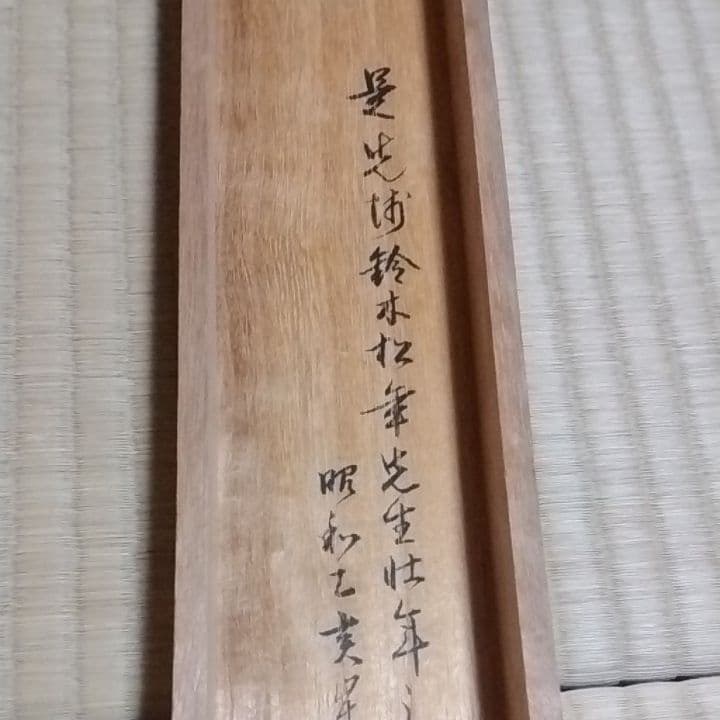 是先師鈴木松年先生壮年之
昭和乙亥